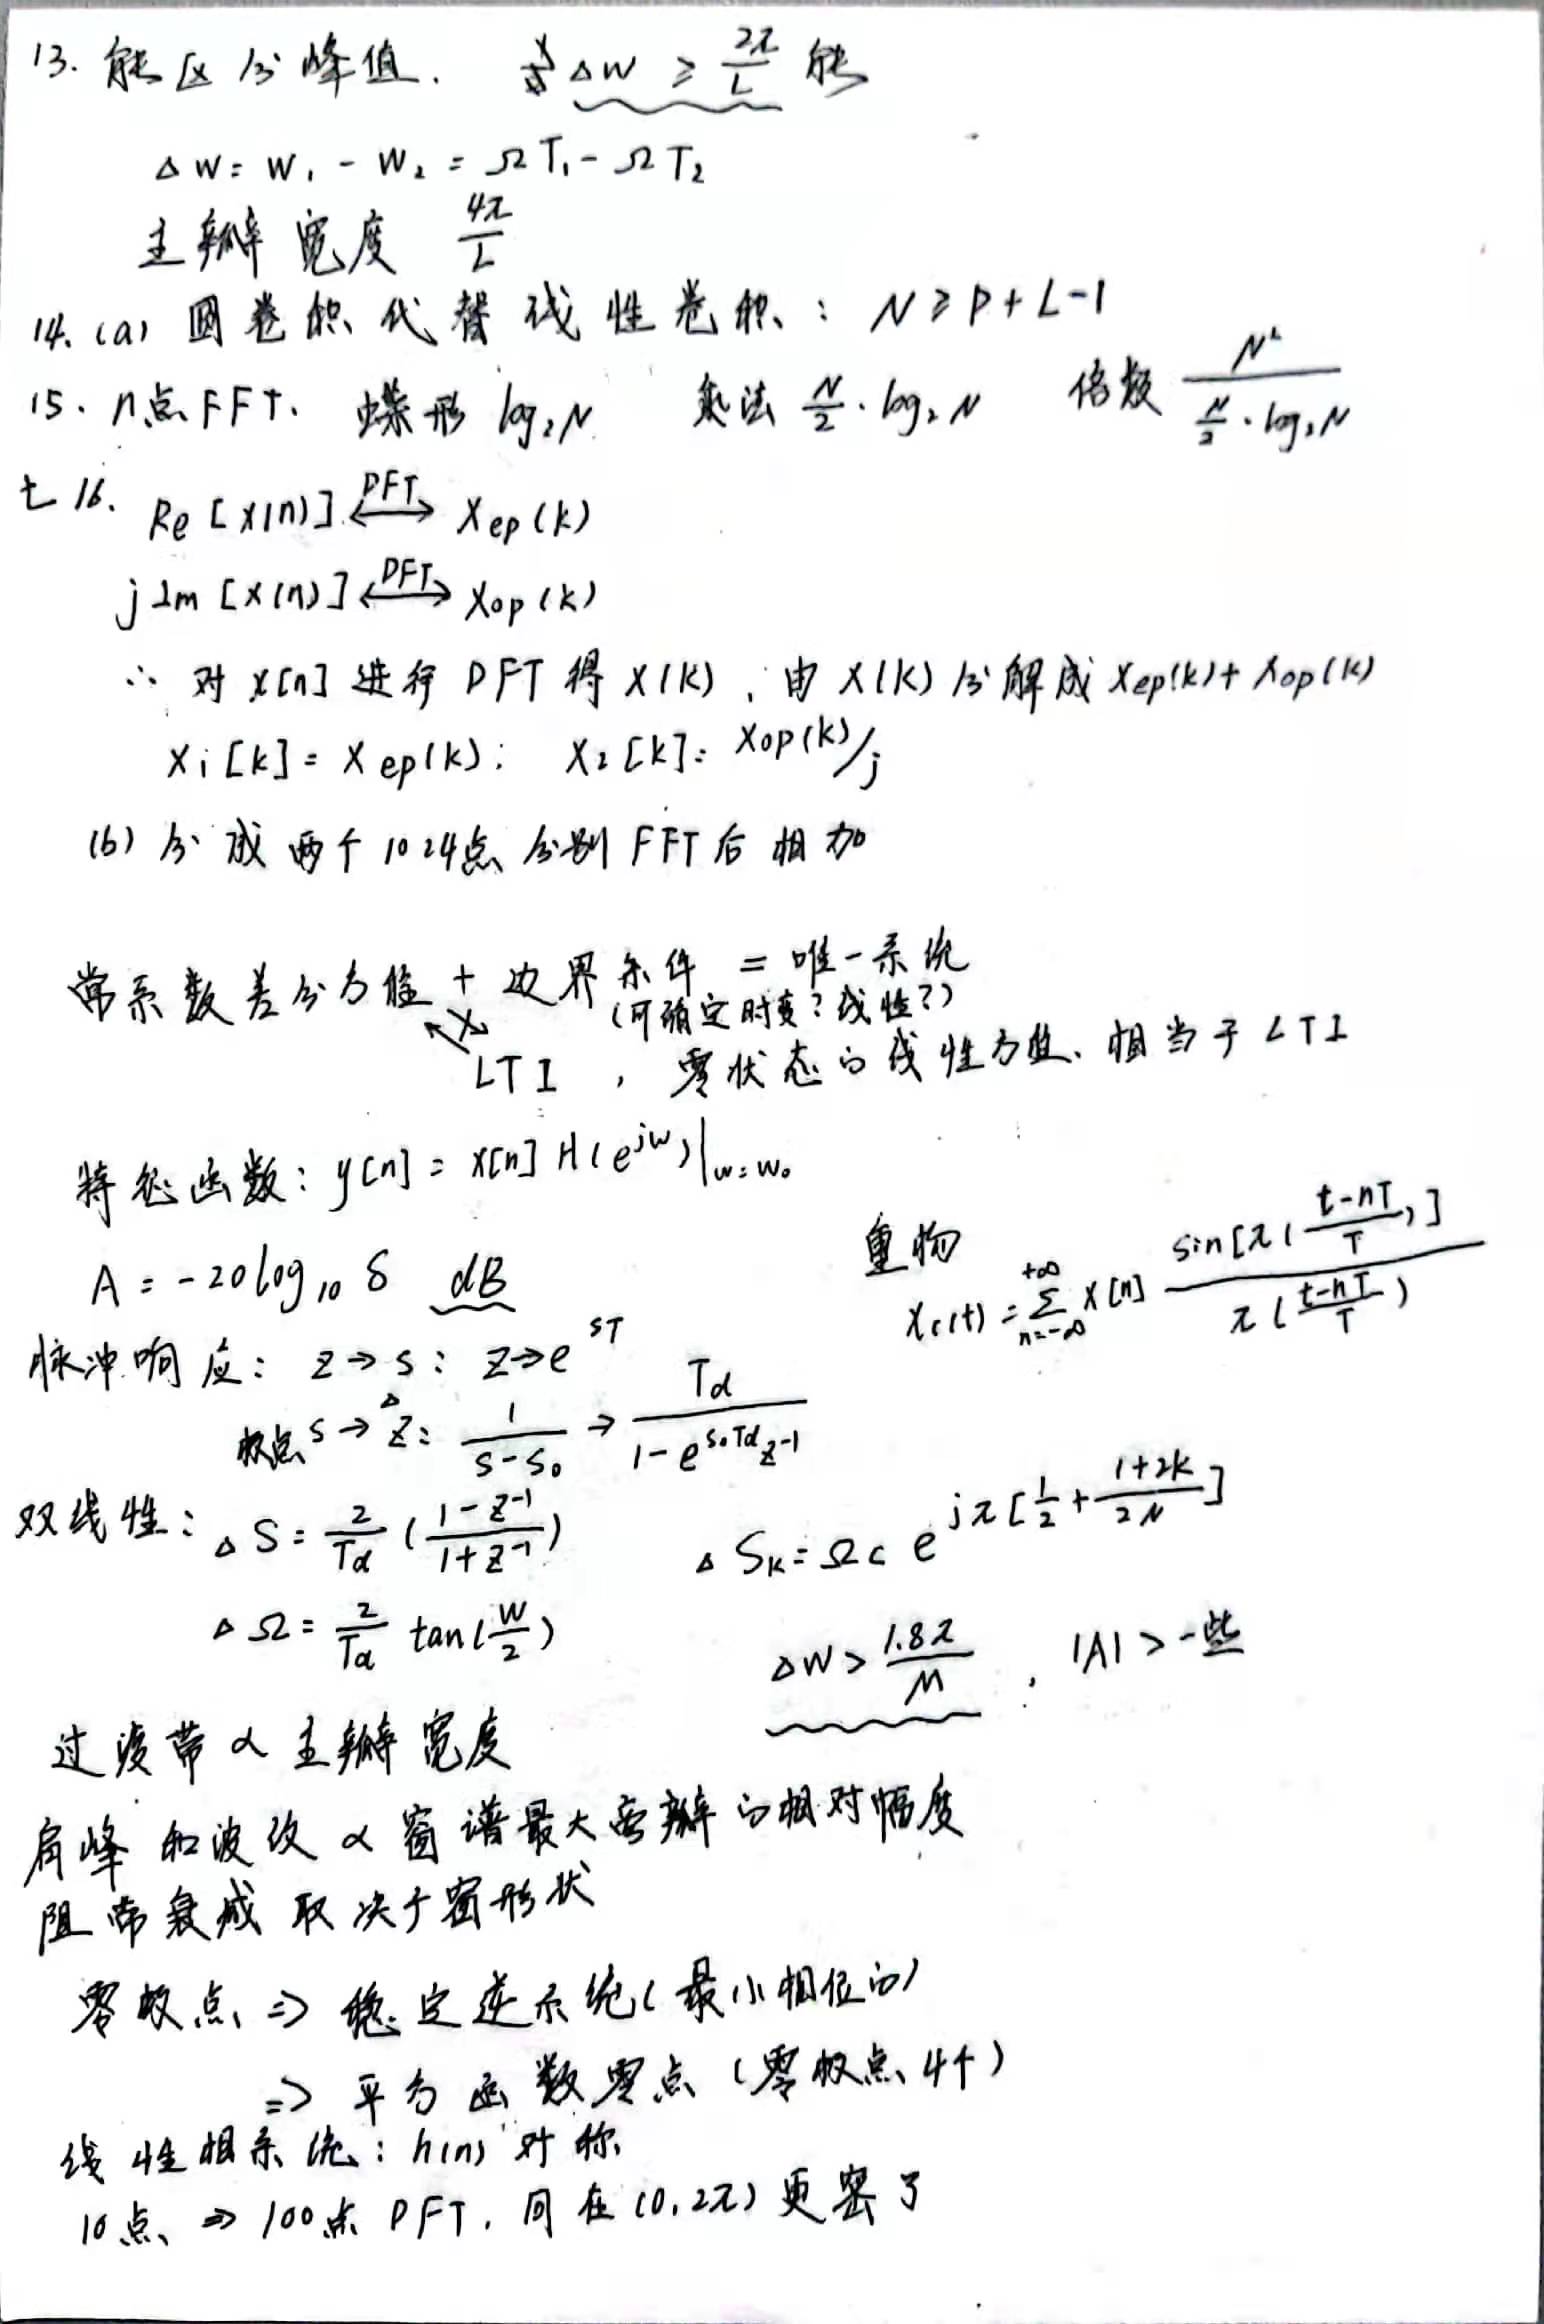 13. 能区分峰值. 若 Δw ≥ 2π/L 能
Δw = w₁ - w₂ = ΩT₁ - ΩT₂
主瓣宽度 4π/L
14. (a) 圆卷积代替线性卷积: N ≥ P + L - 1
15. n点FFT. 蝶形 log₂N 乘法 N/2 · log₂N 倍数 N² / (N/2 · log₂N)
16. Re[x(n)] ⟷(DFT) Xep(k)
jIm[x(n)] ⟷(DFT) Xop(k)
∴ 对 x[n] 进行 DFT 得 X(k), 由 X(k) 分解成 Xep(k) + Xop(k)
X₁[k] = Xep(k); X₂[k] = Xop(k)/j
(b) 分成两个1024点分别FFT后相加
常系数差分方程 + 边界条件 = 唯一系统
(可确定时变?线性?)
LTI , 零状态的线性方程、相当于LTI
特征函数: y[n] = x[n] H(e^{jw})|w=w₀
A = -20log₁₀δ dB
重构
xc(t) = Σ_{n=-∞}^{+∞} x[n] sin[π((t-nT)/T)] / π((t-nT)/T)
脉冲响应: z → s : z → e^{sT}
极点 s → z: 1/(s-s₀) → Td/(1-e^{s₀Td}z⁻¹)
双线性: Δ S = 2/Td ((1-z⁻¹)/(1+z⁻¹))
Δ Sk = Ωc e^{jπ[1/2 + (1+2k)/2N]}
Δ Ω = 2/Td tan(w/2)
Δw > 1.8π/M , |A| > 一些
过渡带 ∝ 主瓣宽度
肩峰和波纹 ∝ 窗谱最大旁瓣的相对幅度
阻带衰减取决于窗形状
零极点 ⇒ 稳定逆系统(最小相位的)
⇒ 平方函数零点 (零极点4个)
线性相系统: h(n)对称
10点 ⇒ 100点 DFT, 同在(0,2π)更密了